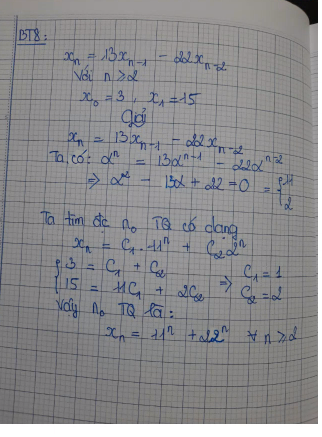 BT8:
xₙ = 13xₙ₋₁ - 22xₙ₋₂
với n ≥ 2
x₀ = 3, x₁ = 15
Giải
xₙ = 13xₙ₋₁ - 22xₙ₋₂
Ta có: αⁿ = 13αⁿ⁻¹ - 22αⁿ⁻²
⇒ α² - 13α + 22 = 0 = { 11
2
Ta tìm đc n₀ TQ có dạng
xₙ = C₁.11ⁿ + C₂.2ⁿ
{ 3 = C₁ + C₂ ⇒ C₁ = 1
15 = 11C₁ + 2C₂ C₂ = 2
Vậy n₀ TQ là:
xₙ = 11ⁿ + 22ⁿ ∀ n ≥ 2